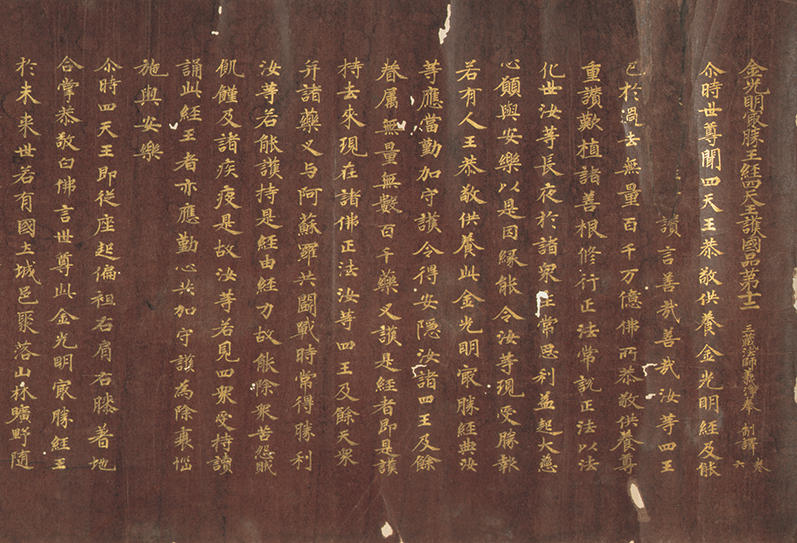 金光明最勝王經四天王護國品第十二 三藏法師義淨奉 制譯 卷六
尒時世尊聞四天王恭敬供養金光明經及能
讚言善哉善哉汝等四王
已於過去無量百千万億佛所恭敬供養尊
重讚歎植諸善根修行正法常說正法以法
化世汝等長夜於諸衆生常思利益起大慈
心願與安樂以是因緣能令汝等現受勝報
若有人王恭敬供養此金光明最勝經典汝
等應當勤加守護令得安隱汝諸四王及餘
眷屬無量無數百千藥叉護是經者即是護
持去來現在諸佛正法汝等四王及餘天衆
并諸藥叉与阿蘇羅共鬪戰時常得勝利
汝等若能護持是經由經力故能除衆苦怨賊
飢饉及諸疾疫是故汝等若見四衆受持讀
誦此經王者亦應勤心共加守護為除衰惱
施與安樂
尒時四天王即從座起偏袒右肩右膝著地
合掌恭敬白佛言世尊此金光明最勝經王
於未來世若有國土城邑聚落山林曠野隨